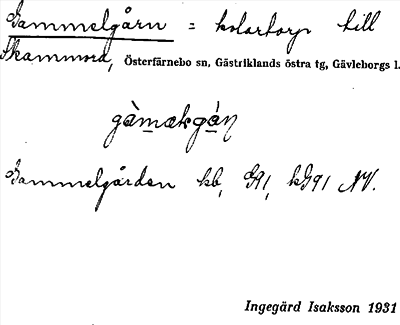 Gammelgårn = kolartorp till
Skammora, Österfärnebo sn, Gästriklands östra tg, Gävleborgs l.
gàmækgán
Gammelgården kb, G91, kG91 NV.
Ingegärd Isaksson 1931